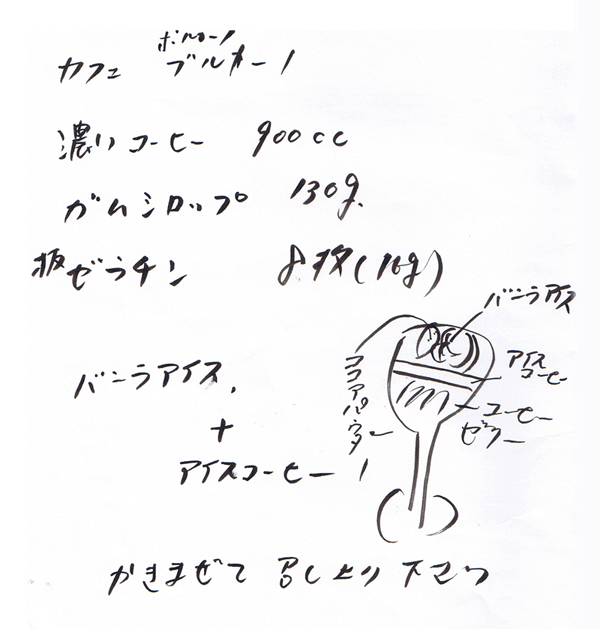 カフェ ブルオーノ
濃いコーヒー 900cc
ガムシロップ 130g.
板ゼラチン 8枚(16g)
バニラアイス
アイスコーヒー
コーヒーゼリー
ココアパウダー
バニラアイス,
+
アイスコーヒー
かきまぜて 召し上り下さい